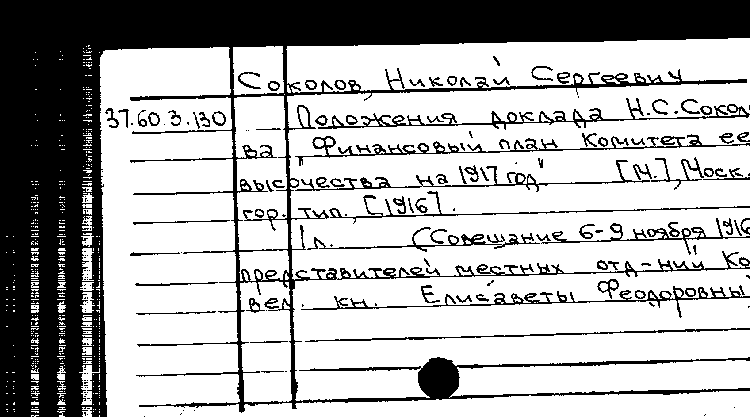 Соколов, Николай Сергеевич
37.60.3.130 Положения доклада Н.С.Соколо
ва „Финансовый план Комитета ее
высочества на 1917 год." [М.], Моск.
гор. тип., [1916].
1 л. (Совещание 6-9 ноября 1916
представителей местных отд-ний Ко
вел. кн. Елисаветы Феодоровны